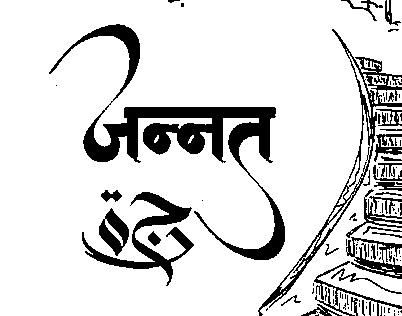 जन्नत
جنة